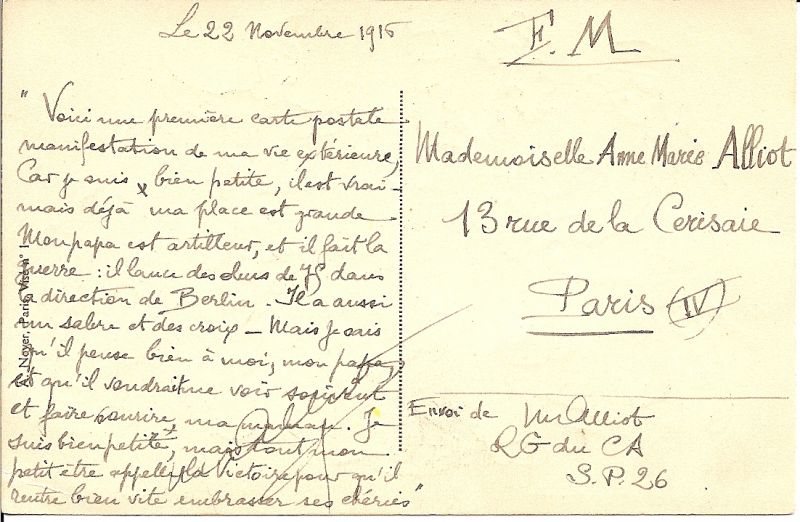 Le 22 Novembre 1916
F. M
" Voici une première carte postale
manifestation de ma vie extérieure,
Car je suis bien petite, il est vrai
mais déjà ma place est grande
Mon papa est artilleur, et il fait la
guerre : il lance des obus de 75 dans
la direction de Berlin. Il a aussi
un sabre et des croix - Mais je sais
qu'il pense bien à moi, mon papa,
et qu'il voudrait me voir sourire
et faire sourire, ma maman. Je
suis bien petite, mais tout mon
petit être appelle la Victoire pour qu'il
rentre bien vite embrasser ses chéries "
Noyer, Paris, Visé n°
Mademoiselle Anne Marie Alliot
13 rue de la Cerisaie
Paris (IV)
Envoi de M Alliot
QG du CA
S.P. 26